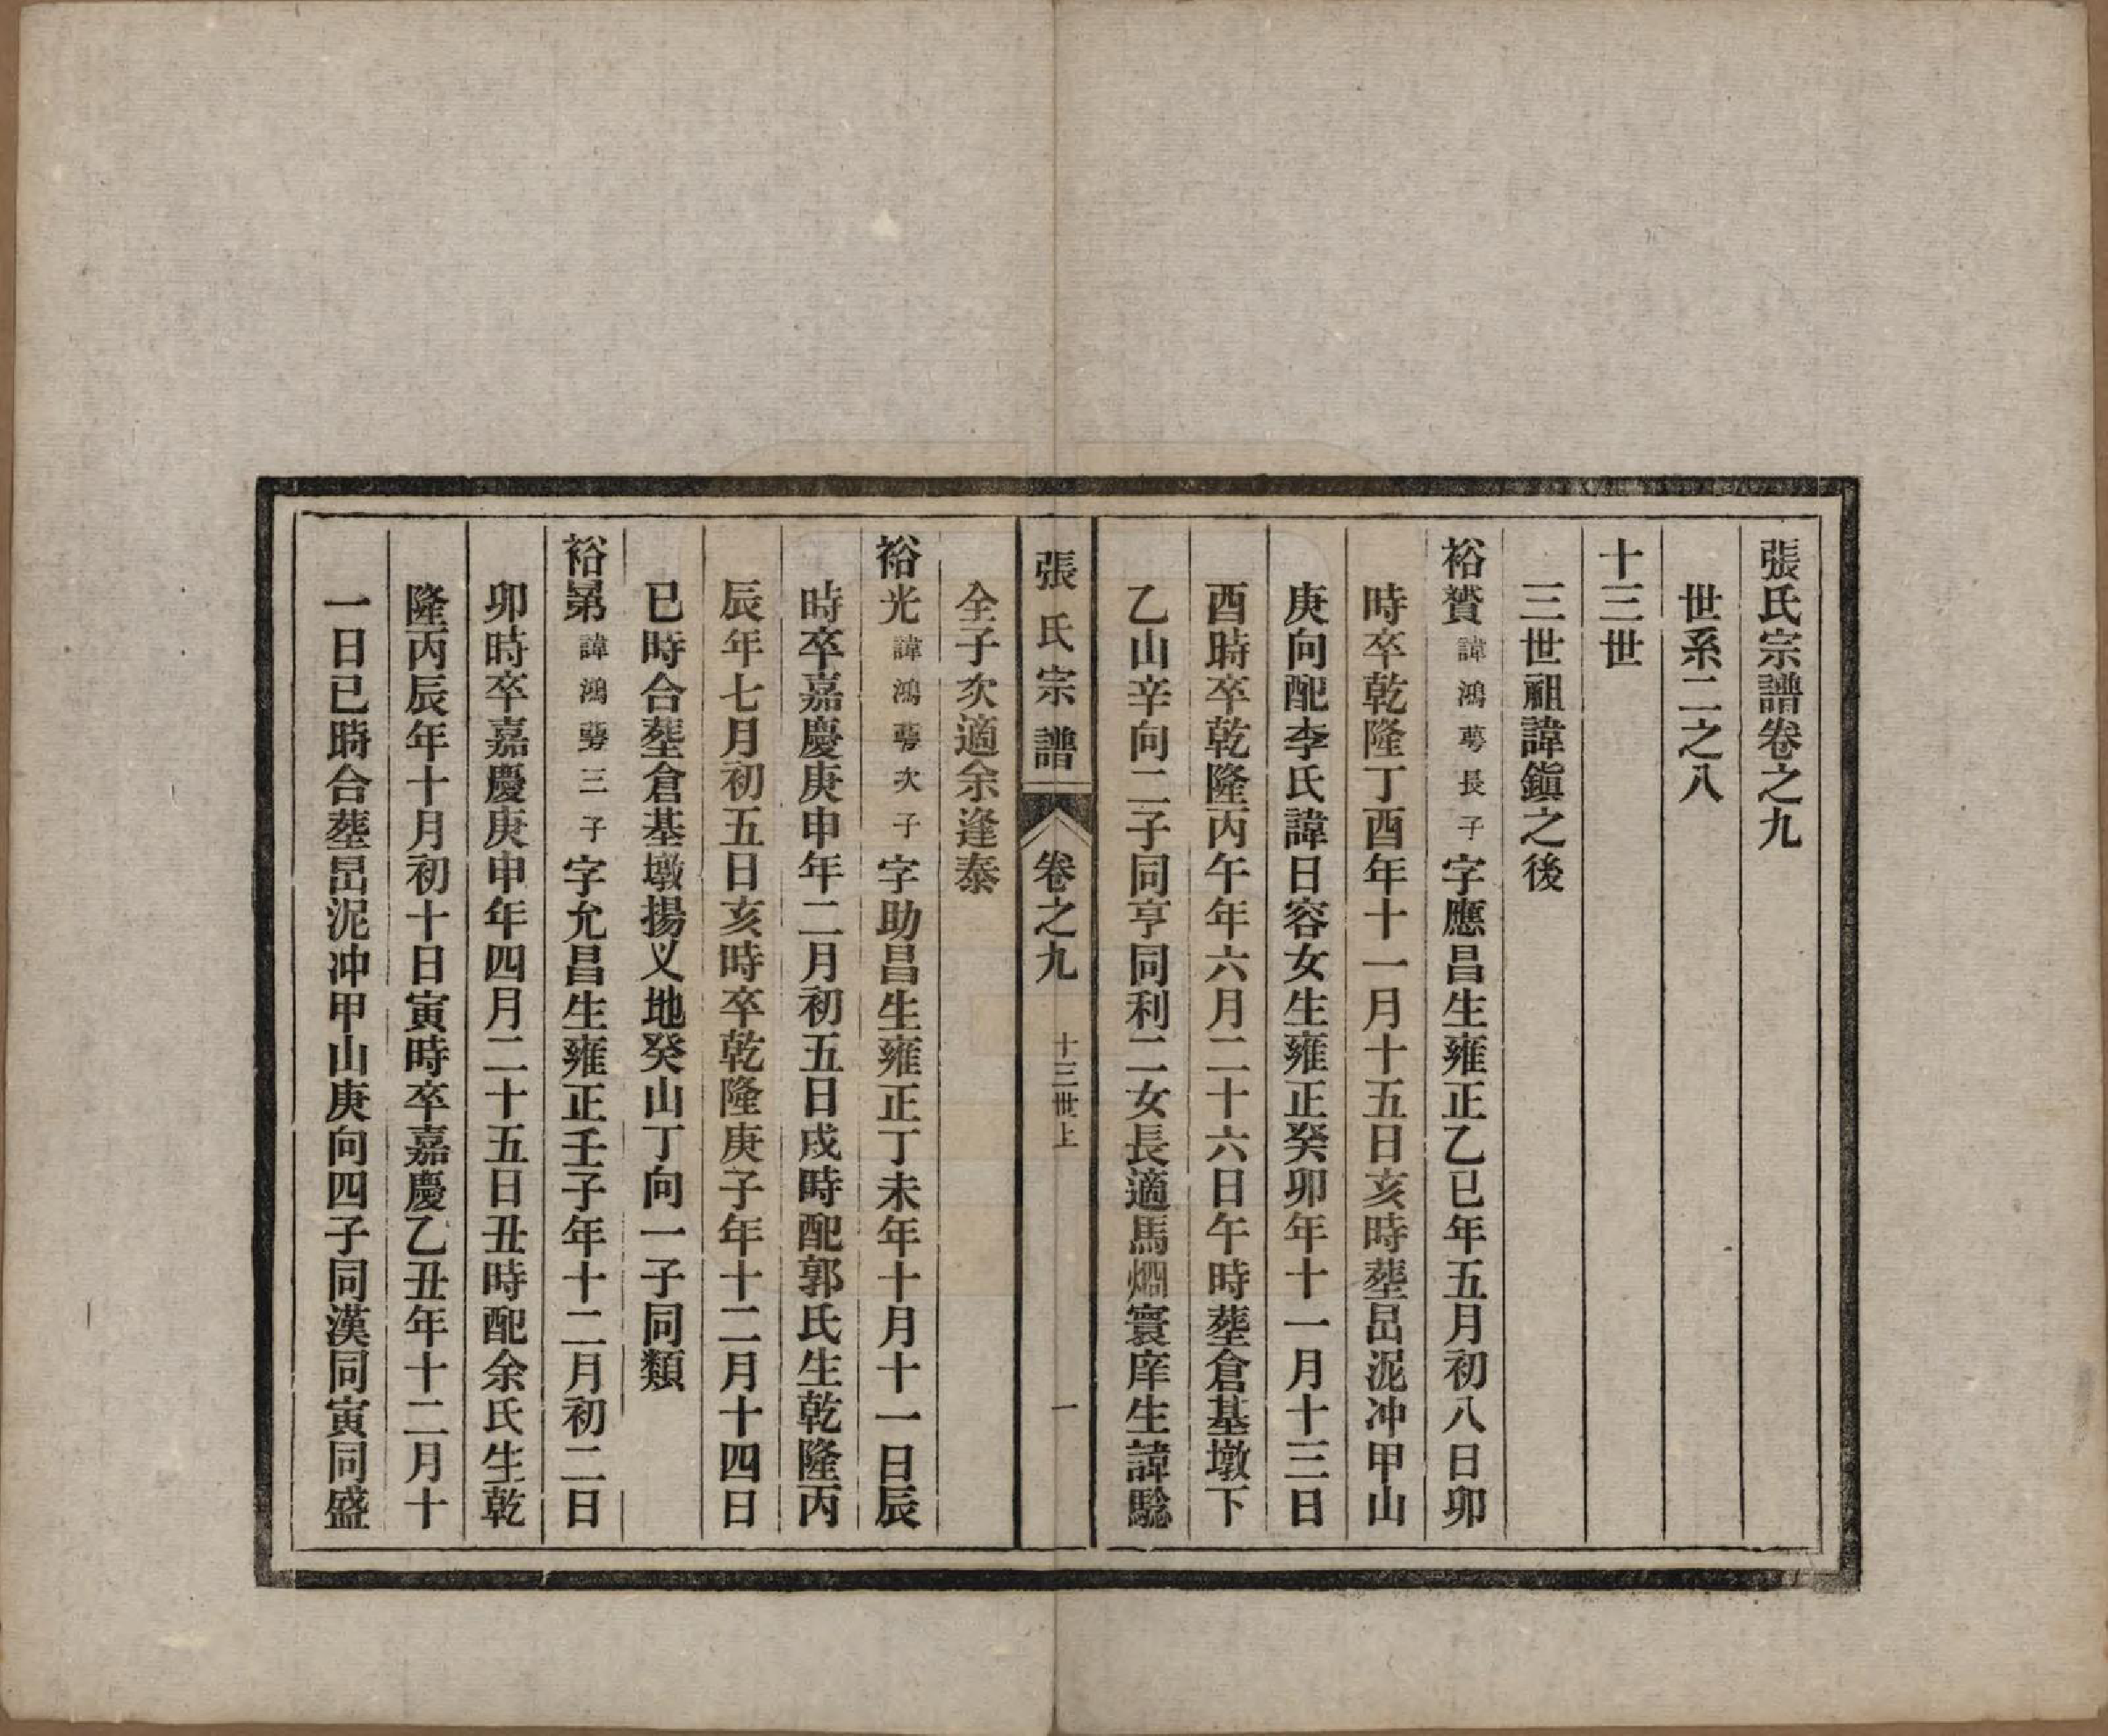 張氏宗譜卷之九
世系二之八
十三世
三世祖諱鎭之後
裕贇諱鴻蕚長子字應昌生雍正乙巳年五月初八日卯
時卒乾隆丁酉年十一月十五日亥時塟昷泥冲甲山
庚向配李氏諱日容女生雍正癸卯年十一月十三日
酉時卒乾隆丙午年六月二十六日午時塟倉基墩下
乙山辛向二子同亨同利二女長適馬烱寰庠生諱騐
張氏宗譜 卷之九 十三世上 一
全子次適余逢泰
裕光諱鴻蕚次子字助昌生雍正丁未年十月十一日辰
時卒嘉慶庚申年二月初五日戌時配郭氏生乾隆丙
辰年七月初五日亥時卒乾隆庚子年十二月十四日
巳時合塟倉基墩揚义地癸山丁向一子同類
裕㬎諱鴻蕚三子字允昌生雍正壬子年十二月初二日
卯時卒嘉慶庚申年四月二十五日丑時配余氏生乾
隆丙辰年十月初十日寅時卒嘉慶乙丑年十二月十
一日巳時合塟昷泥冲甲山庚向四子同漢同寅同盛